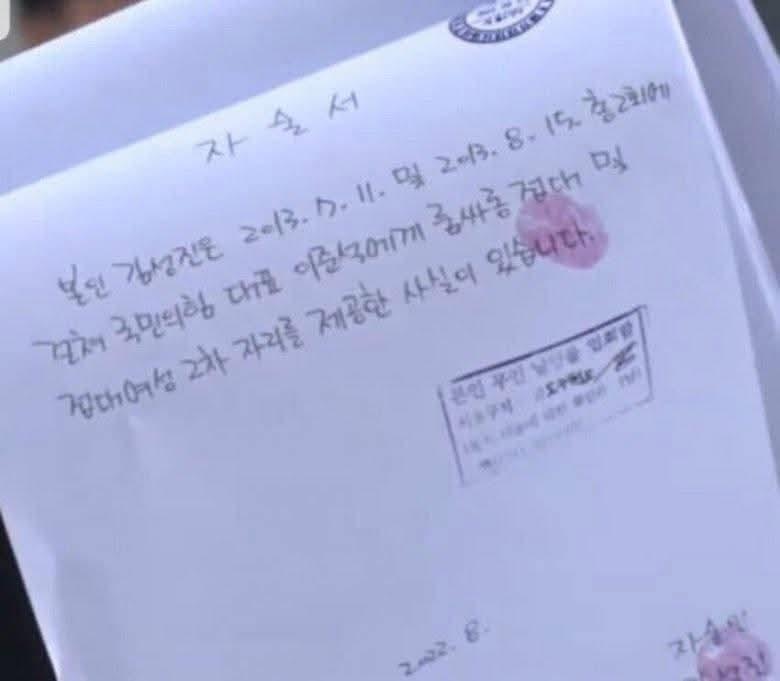 자술서
본인 김성진은 2013. 7. 11. 및 2013. 8. 15. 총 2회에
걸쳐 국민의힘 대표 이준석에게 룸싸롱 접대 및
접대여성 2차 자리를 제공한 사실이 있습니다.
본인 무인 날인을 
2022. 8.
자술인